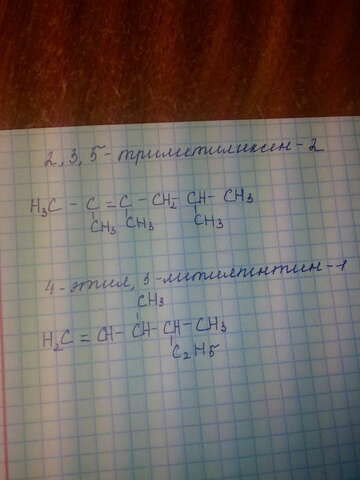 2, 3, 5 - триметилгексен - 2
H3C - C = C - CH2 CH - CH3
CH3 CH3 CH3
4 - этил, 3 - метилпентин - 1
CH3
H2C = CH - CH - CH - CH3
C2H5